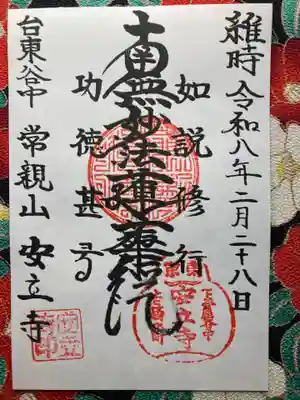 維時 令和八年二月二十八日
如説修行
南無妙法蓮華経
功徳甚多
台東谷中 常観山 安立寺
安立寺